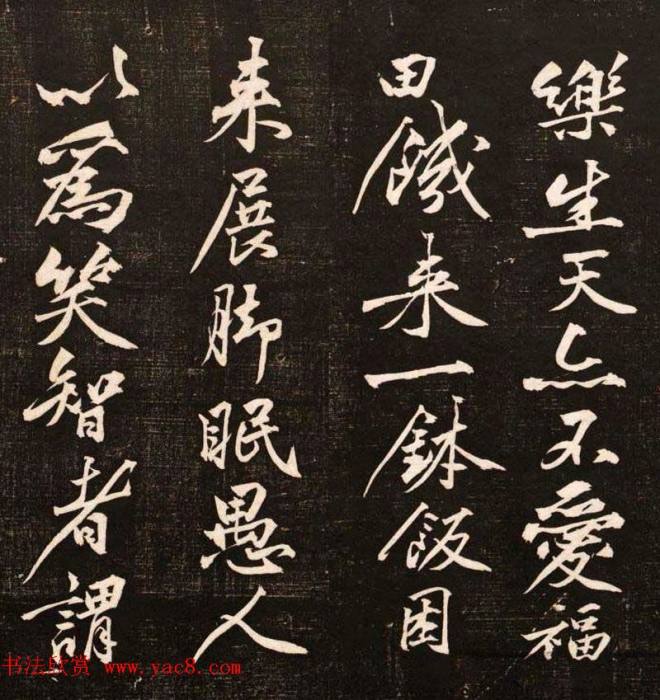 樂生天亦不愛福
田饑來一鉢飯困
来展脚眠愚人
以為笑智者謂
书法欣赏 www.yac8.com